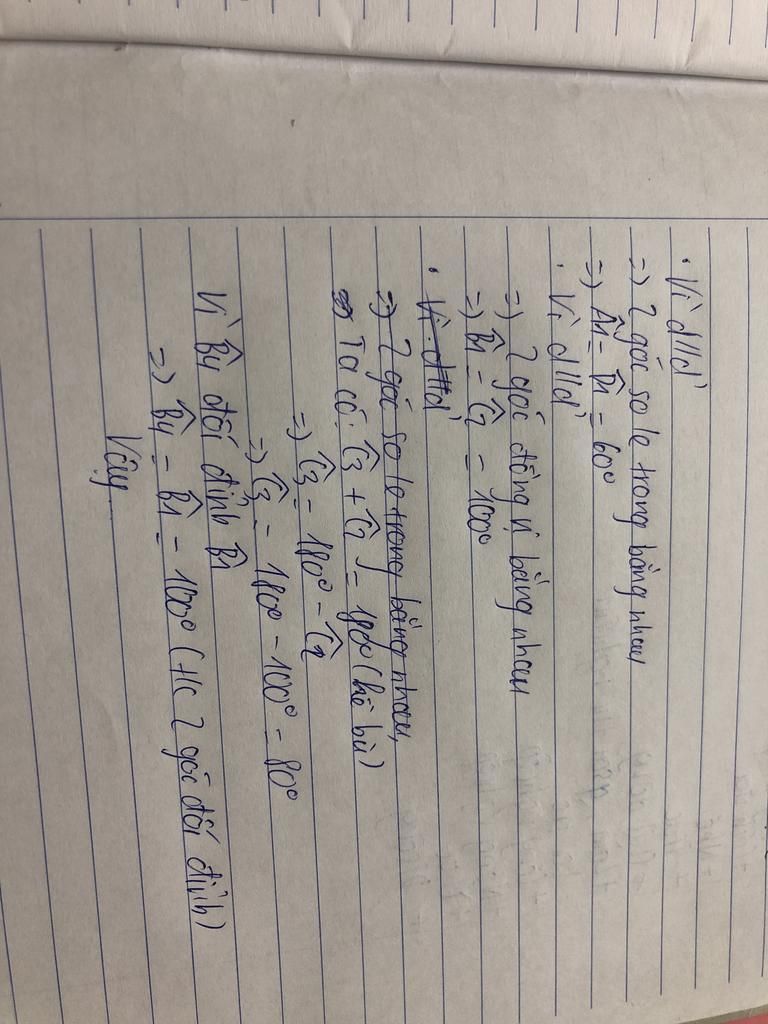 . Vì d//d'
=) 2 góc so le trong bằng nhau
=) Â1 = D̂1 = 60°
. Vì d//d'
=) 2 góc đồng vị bằng nhau
=) B̂1 = Ĉ2 = 100°
. Vì d//d'
=) 2 góc so le trong bằng nhau,
Ta có: Ĉ3 + Ĉ2 = 180° (kề bù)
=) Ĉ3 = 180° - Ĉ2
=) Ĉ3 = 180° - 100° = 80°
Vì B̂4 đối đỉnh B̂1
=) B̂4 = B̂1 = 100° (t/c 2 góc đối đỉnh)
Vậy